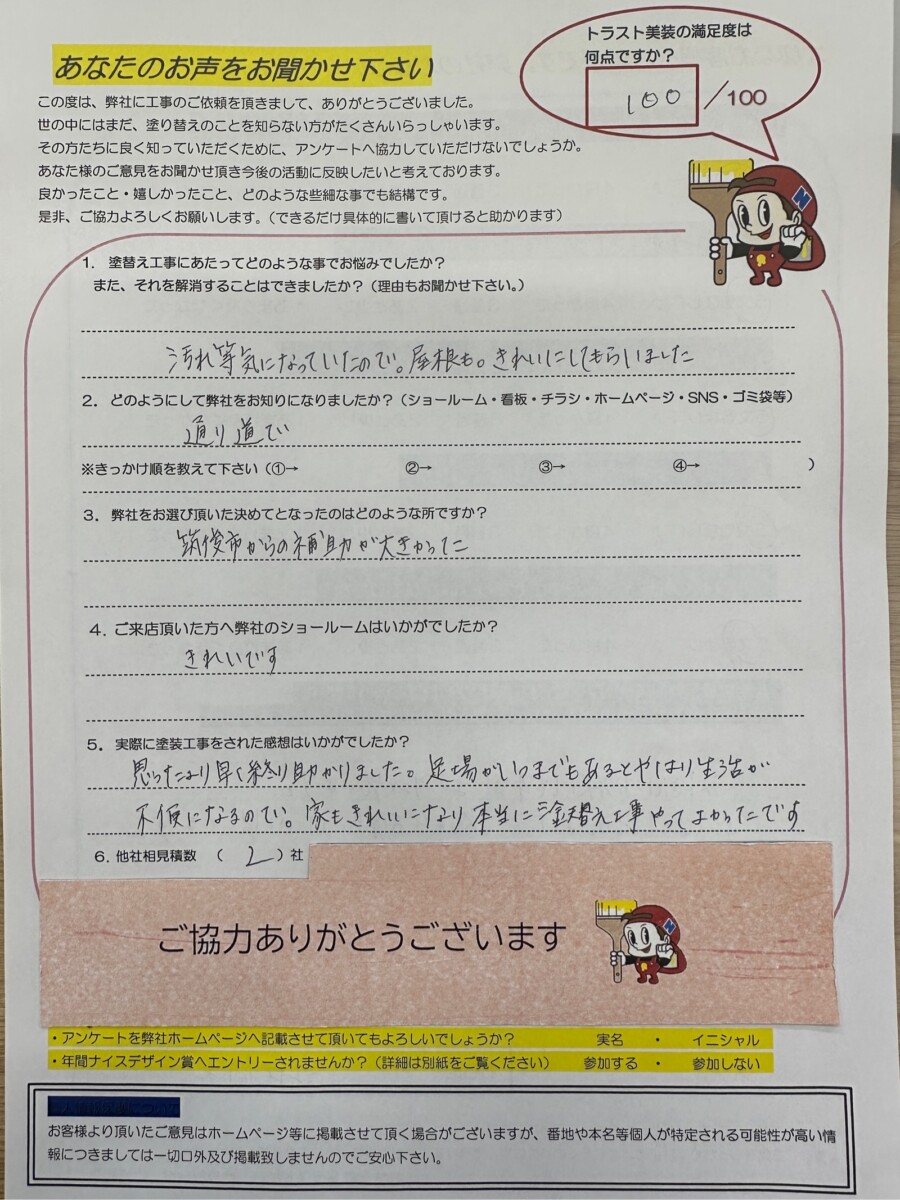 トラスト美装の満足度は
何点ですか？
100/100
あなたのお声をお聞かせ下さい
この度は、弊社に工事のご依頼を頂きまして、ありがとうございました。
世の中にはまだ、塗り替えのことを知らない方がたくさんいらっしゃいます。
その方たちに良く知っていただくために、アンケートへ協力していただけないでしょうか。
あなた様のご意見をお聞かせ頂き今後の活動に反映したいと考えております。
良かったこと・嬉しかったこと、どのような些細な事でも結構です。
是非、ご協力よろしくお願いします。（できるだけ具体的に書いて頂けると助かります）
N
1. 塗替え工事にあたってどのような事でお悩みでしたか？
また、それを解消することはできましたか？（理由もお聞かせ下さい。）
汚れ等気になっていたので。屋根も。きれいにしてもらいました
2. どのようにして弊社をお知りになりましたか？（ショールーム・看板・チラシ・ホームページ・SNS・ゴミ袋等）
通り道で
※きっかけ順を教えて下さい（①→ ②→ ③→ ④→ ）
3. 弊社をお選び頂いた決めてとなったのはどのような所ですか？
筑後市からの補助が大きかった
4. ご来店頂いた方へ弊社のショールームはいかがでしたか？
きれいです
5. 実際に塗装工事をされた感想はいかがでしたか？
思ったより早く終り助かりました。足場がいつまでもあるとやはり生活が
不便になるので。家もきれいになり本当に塗替え工事やってよかったです
6. 他社相見積数 （ 2 ）社
ご協力ありがとうございます
N
・アンケートを弊社ホームページへ記載させて頂いてもよろしいでしょうか？ 実名 ・ イニシャル
・年間ナイスデザイン賞へエントリーされませんか？（詳細は別紙をご覧ください） 参加する ・ 参加しない
お客様より頂いたご意見はホームページ等に掲載させて頂く場合がございますが、番地や本名等個人が特定される可能性が高い情
報につきましては一切口外及び掲載致しませんのでご安心下さい。